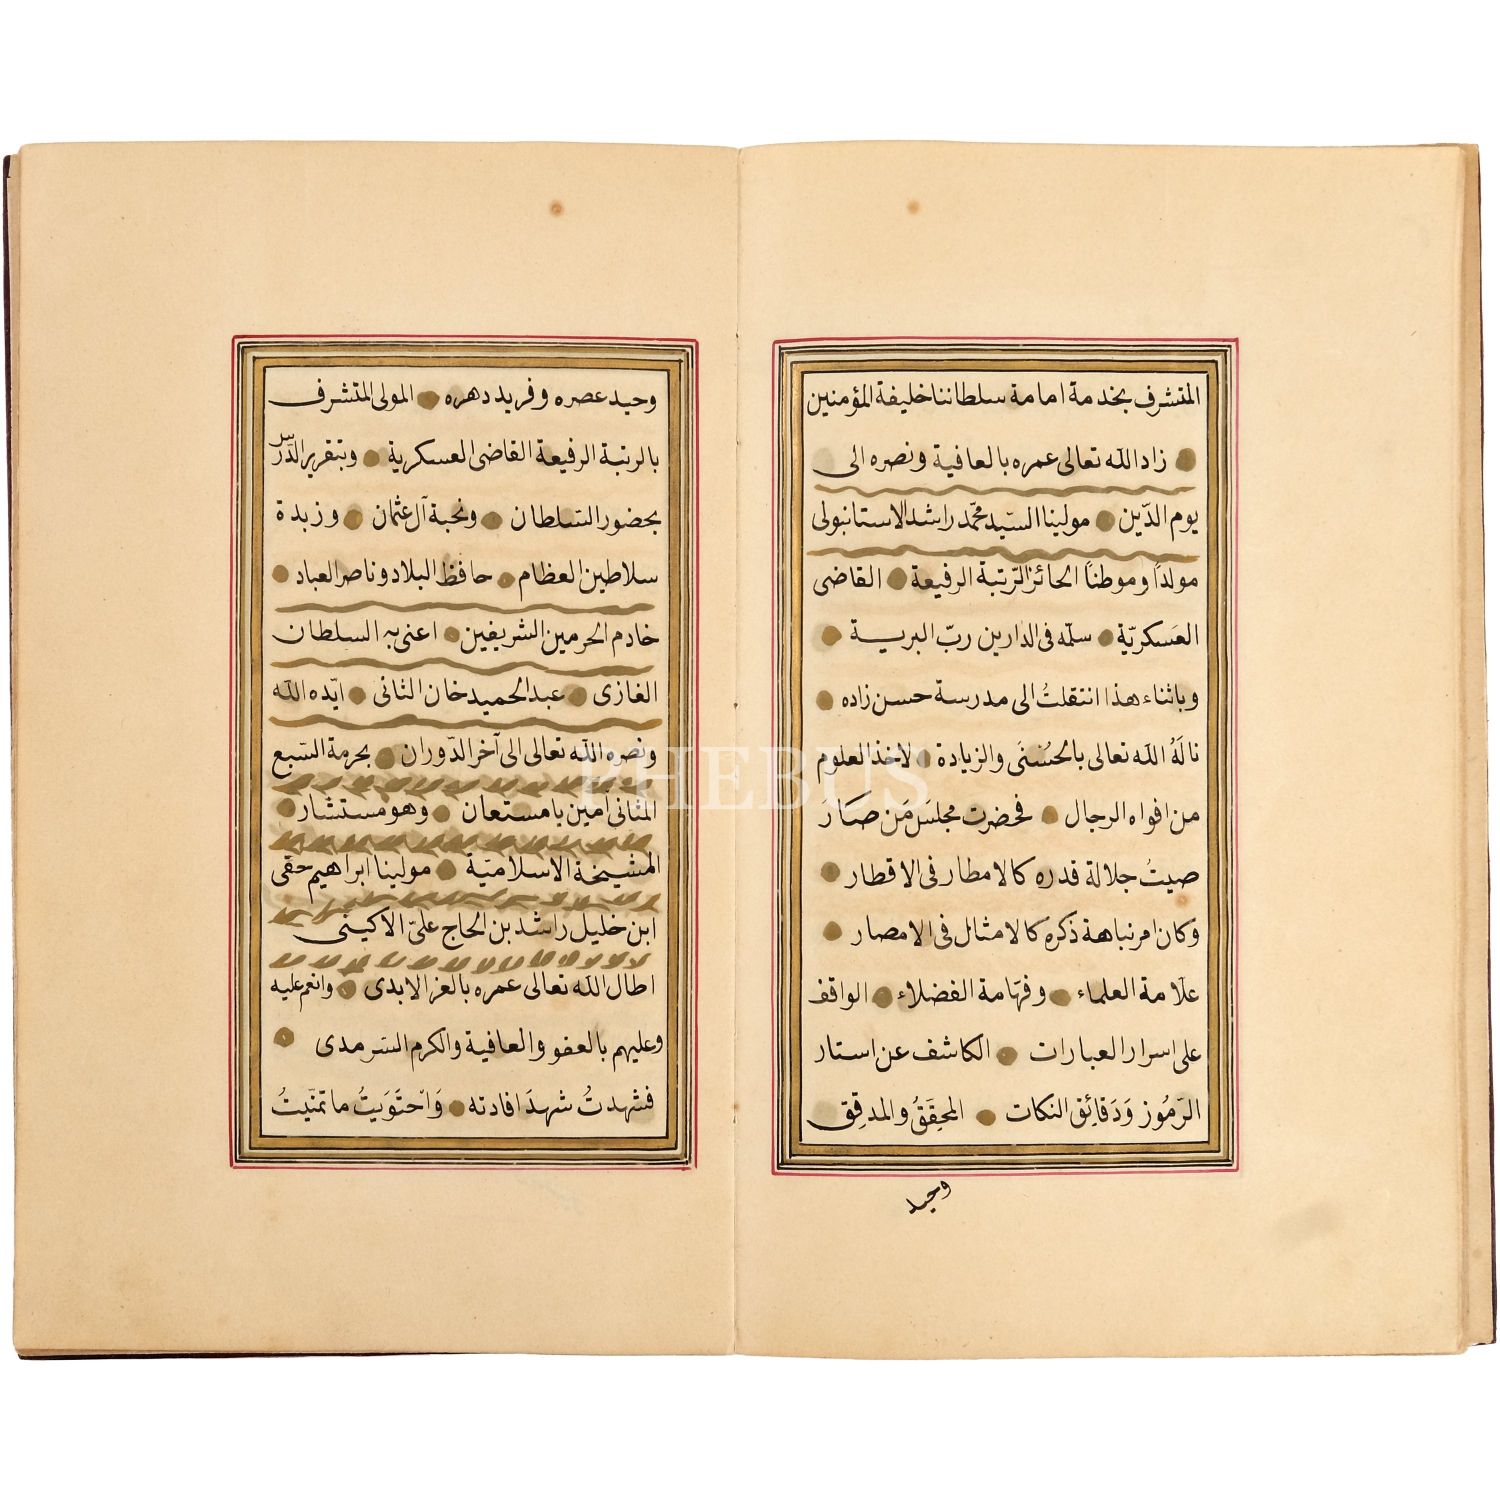 المتشرف بخدمة امامة سلطاننا خليفة المؤمنين
زاد الله تعالى عمره بالعافية ونصره الى
يوم الدّين مولينا السيّد محمّد راشد الاستانبولى
مولداً وموطناً الحائز الرّتبة الرفيعة القاضى
العسكريّة سلمّه فى الدارين ربّ البرية
وباثناء هذا انتقلتُ الى مدرسة حسن زاده
نالَهُ الله تعالى بالحُسْنَى والزيادة لاخذ العلوم
من افواه الرجال فحضرت مجلسَ مَن صَارَ
صيتُ جلالة قدره كالامطار فى الاقطار
وكان امر نباهة ذكره كالامثال فى الامصار
علّامة العلماء وفهّامة الفضلاء الواقف
على اسرار العبارات الكاشف عن استار
الرّمُوز وَدَقائِق النكات المحِقِقُ والمدقِق
وحيد
وحيد عصره وفريد دهره المولى المتشرف
بالرتبة الرفيعة القاضى العسكرية وبتقرير الدّرس
بحضور السّلطان ونخبة آل عثمان وزبدة
سلاطين العظام حافظ البلاد وناصر العباد
خادم الحرمين الشريفين اعنى به السلطان
الغازى عبد الحميد خان الثانى ايّده الله
ونصره الله تعالى الى آخر الدّوران بحرمة السّبع
المثانى آمين يا مستعان وهو مستشار
المشيخة الاسلاميّة مولينا ابراهيم حقى
ابن خليل راشد بن الحاج علىّ الاكينى
اطال الله تعالى عمره بالعز الابدى وانعم عليه
وعليهم بالعفو والعافية والكرم السّرمدى
فشهدتُ شهدَ افادته وَاحْتَوَيتُ ما تمنّيتُ
PHEBUS